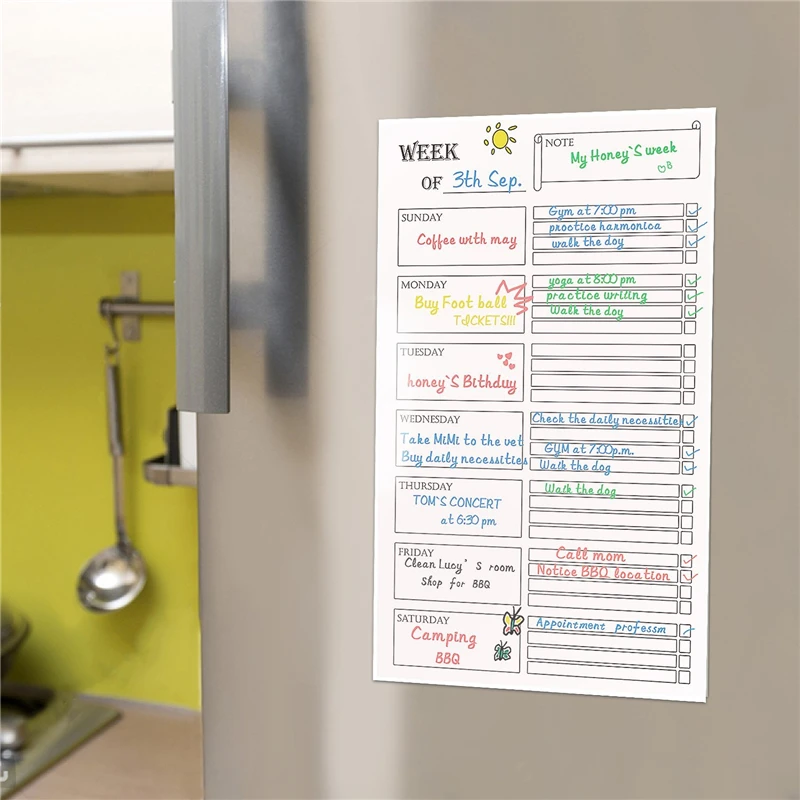 WEEK
OF 3th Sep.
NOTE
My Honey`S week
B
SUNDAY
Coffee with may
Gym at 7:00 pm
practice harmonica
walk the doy
MONDAY
Buy Foot ball
TICKETS!!!
yoga at 8:00 pm
practice writing
Walk the doy
TUESDAY
honey`S Bithduy
WEDNESDAY
Take MiMi to the vet
Buy daily necessities
Check the daily necessities
GYM at 7:00p.m.
Walk the dog
THURSDAY
TOM`S CONCERT
at 6:30 pm
Walk the dog
FRIDAY
Clean Lucy' S room
Shop for BBQ
Call mom
Notice BBQ location
SATURDAY
Camping
BBQ
Appointment professm